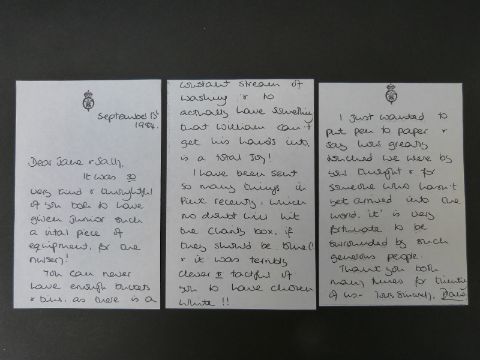 September 1st
1984.
Dear Jane & Sally,
It was so
very kind & thoughtful
of you both to have
given Junior such
a vital piece of
equipment for the
nursery!
You can never
have enough
& bins, as there is a
constant stream of
washing & to
actually have something
that William can't
get his hands into,
is a total joy!
I have been sent
so many things in
Pink recently, which
no doubt will hit
the charity box, if
they should be blue!
& it was terribly
clever & tactful of
you to have chosen
white!!
I just wanted to
put pen to paper &
say how greatly
touched we were by
your thought & for
someone who hasn't
yet arrived into the
world, 'it' is very
fortunate to be
surrounded by such
generous people.
Thank you both
many times for thinking
of us - Yours sincerely, Diana